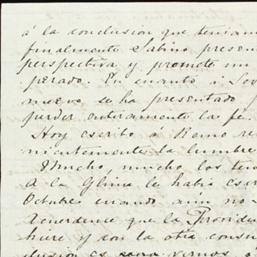 á la conclusion que teniam
finalmente Sabino presen
perspectiva y promete un
perado. En cuanto á
nuevo se ha presentado
perder enteramente la fe.
Hoy escribo á Ramo re
la lumbre
Mucho, mucho los
A la Glima le habia escr
Octubre cuando aun no
Acuerdense que la Provide
hiere y con la otra consu